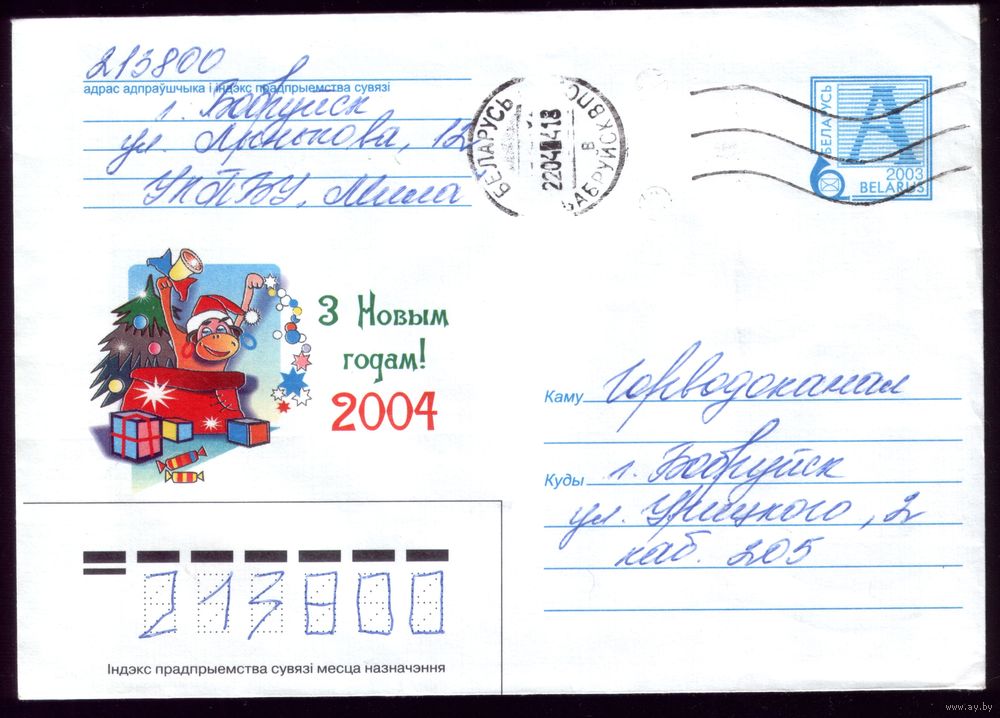 213800
адрас адпраўшчыка і індэкс прадпрыемства сувязі
г. Бобруйск
ул. Лынькова, 12
УКПБУ, Мила
БЕЛАРУСЬ
220414 18
В
БАБРУЙСК ВПС
БЕЛАРУСЬ
А
2003
BELARUS
З Новым
годам!
2004
Каму Горводоканал
Куды г. Бобруйск
ул. Урицкого, 2
каб. 205
213800
Індэкс прадпрыемства сувязі месца назначэння
www.ay.by